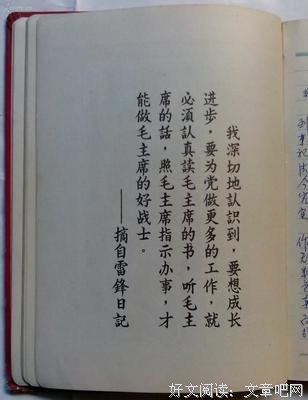 我深切地認識到，要想成长
进步，要为党做更多的工作，就
必須認真读毛主席的书，听毛主
席的話，照毛主席指示办事，才
能做毛主席的好战士。
——摘自雷鋒日記
好文阅读：文章吧网